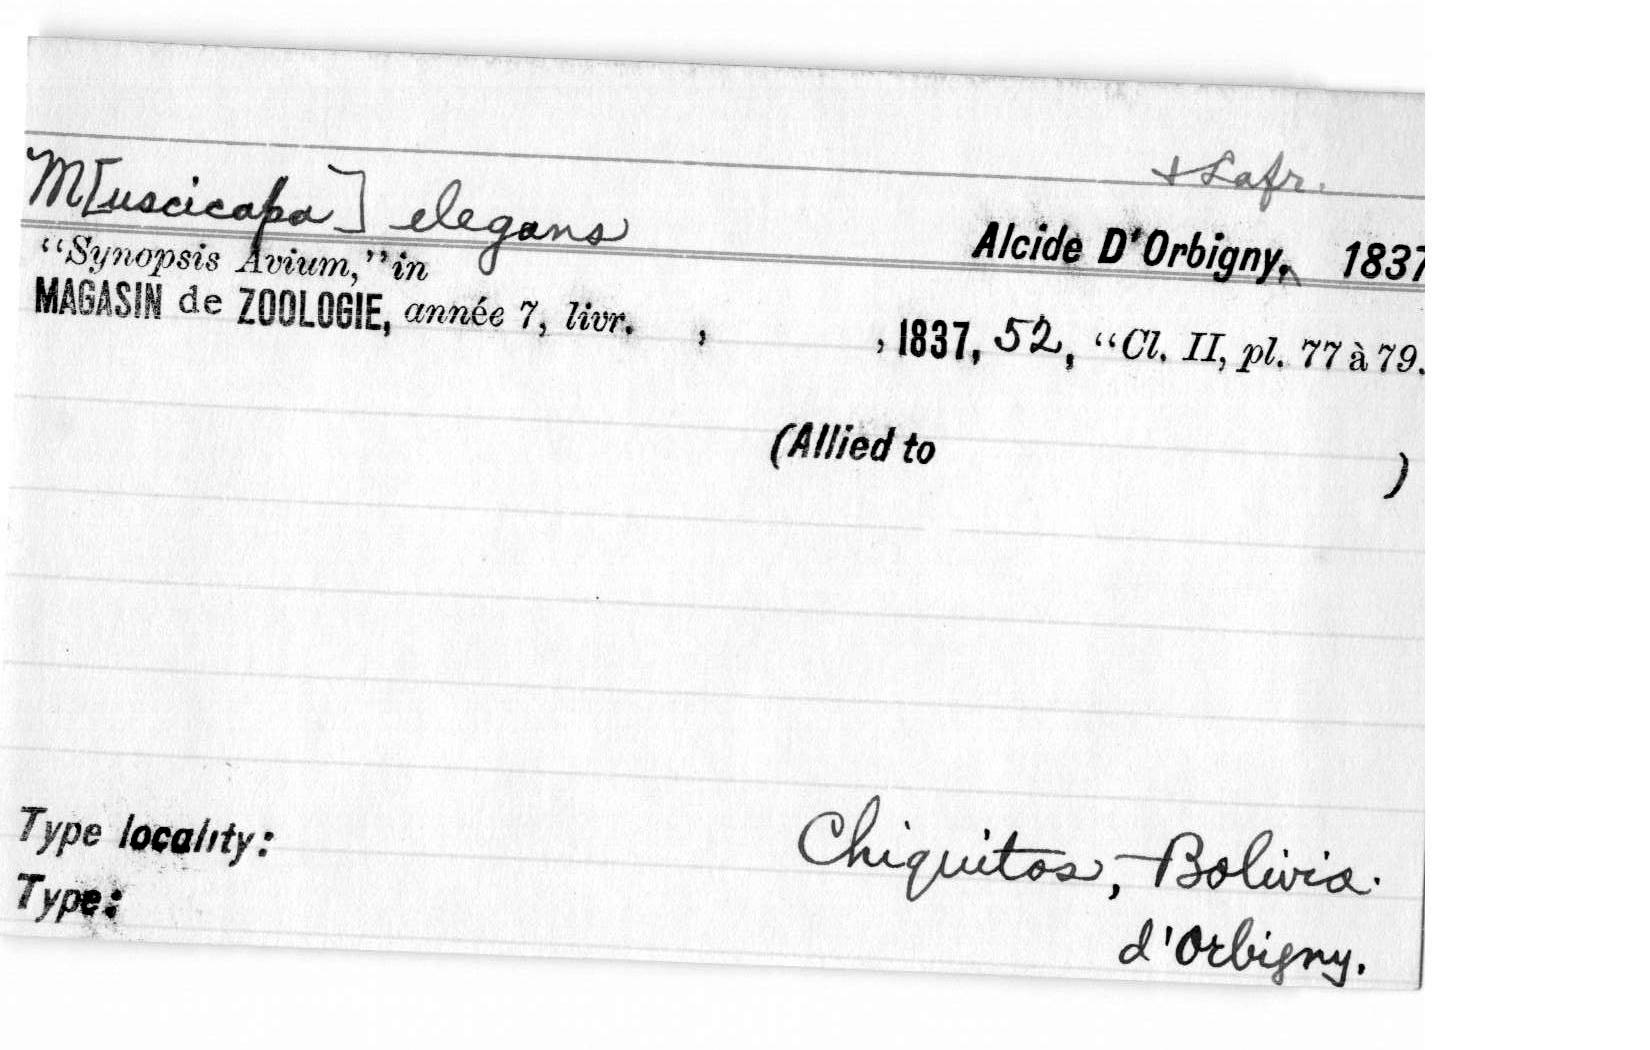 & Lafr.
M[uscicapa] elegans Alcide D'Orbigny, 1837
“Synopsis Avium,” in
MAGASIN de ZOOLOGIE, année 7, livr. , , 1837, 52, “Cl. II, pl. 77 à 79.
(Allied to )
Type locality: Chiquitos, Bolivia.
Type: d'Orbigny.